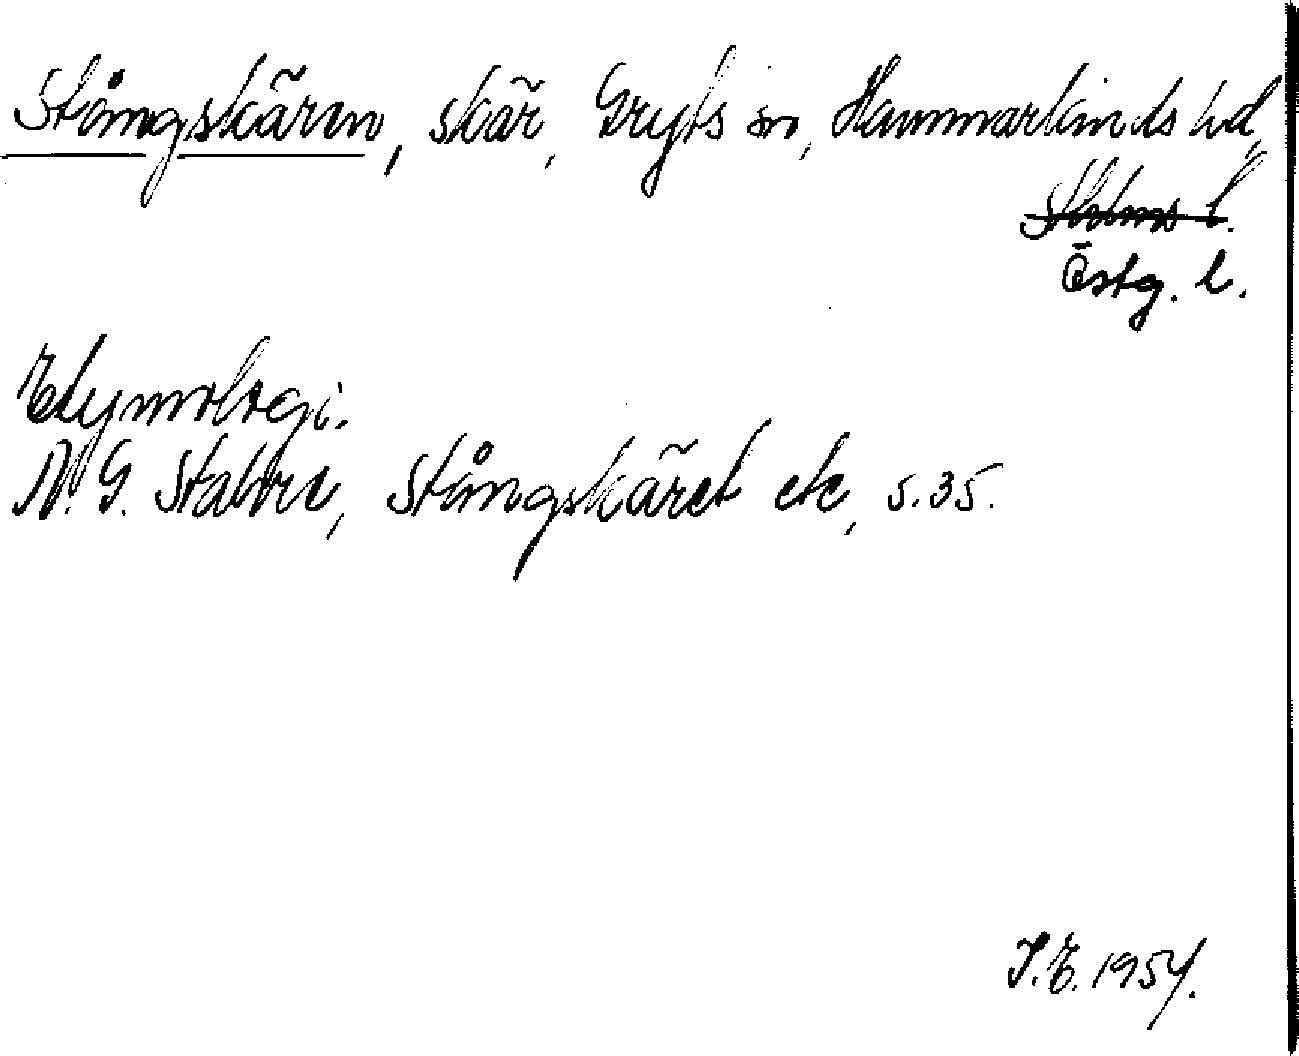 Stångskären, skär, Gryts sn, Hammarkinds hd,
Sthlms l.
Östg. l.
Etymologi.
N. G. Stahre, Stångskäret etc, s. 35.
I. E. 1954.